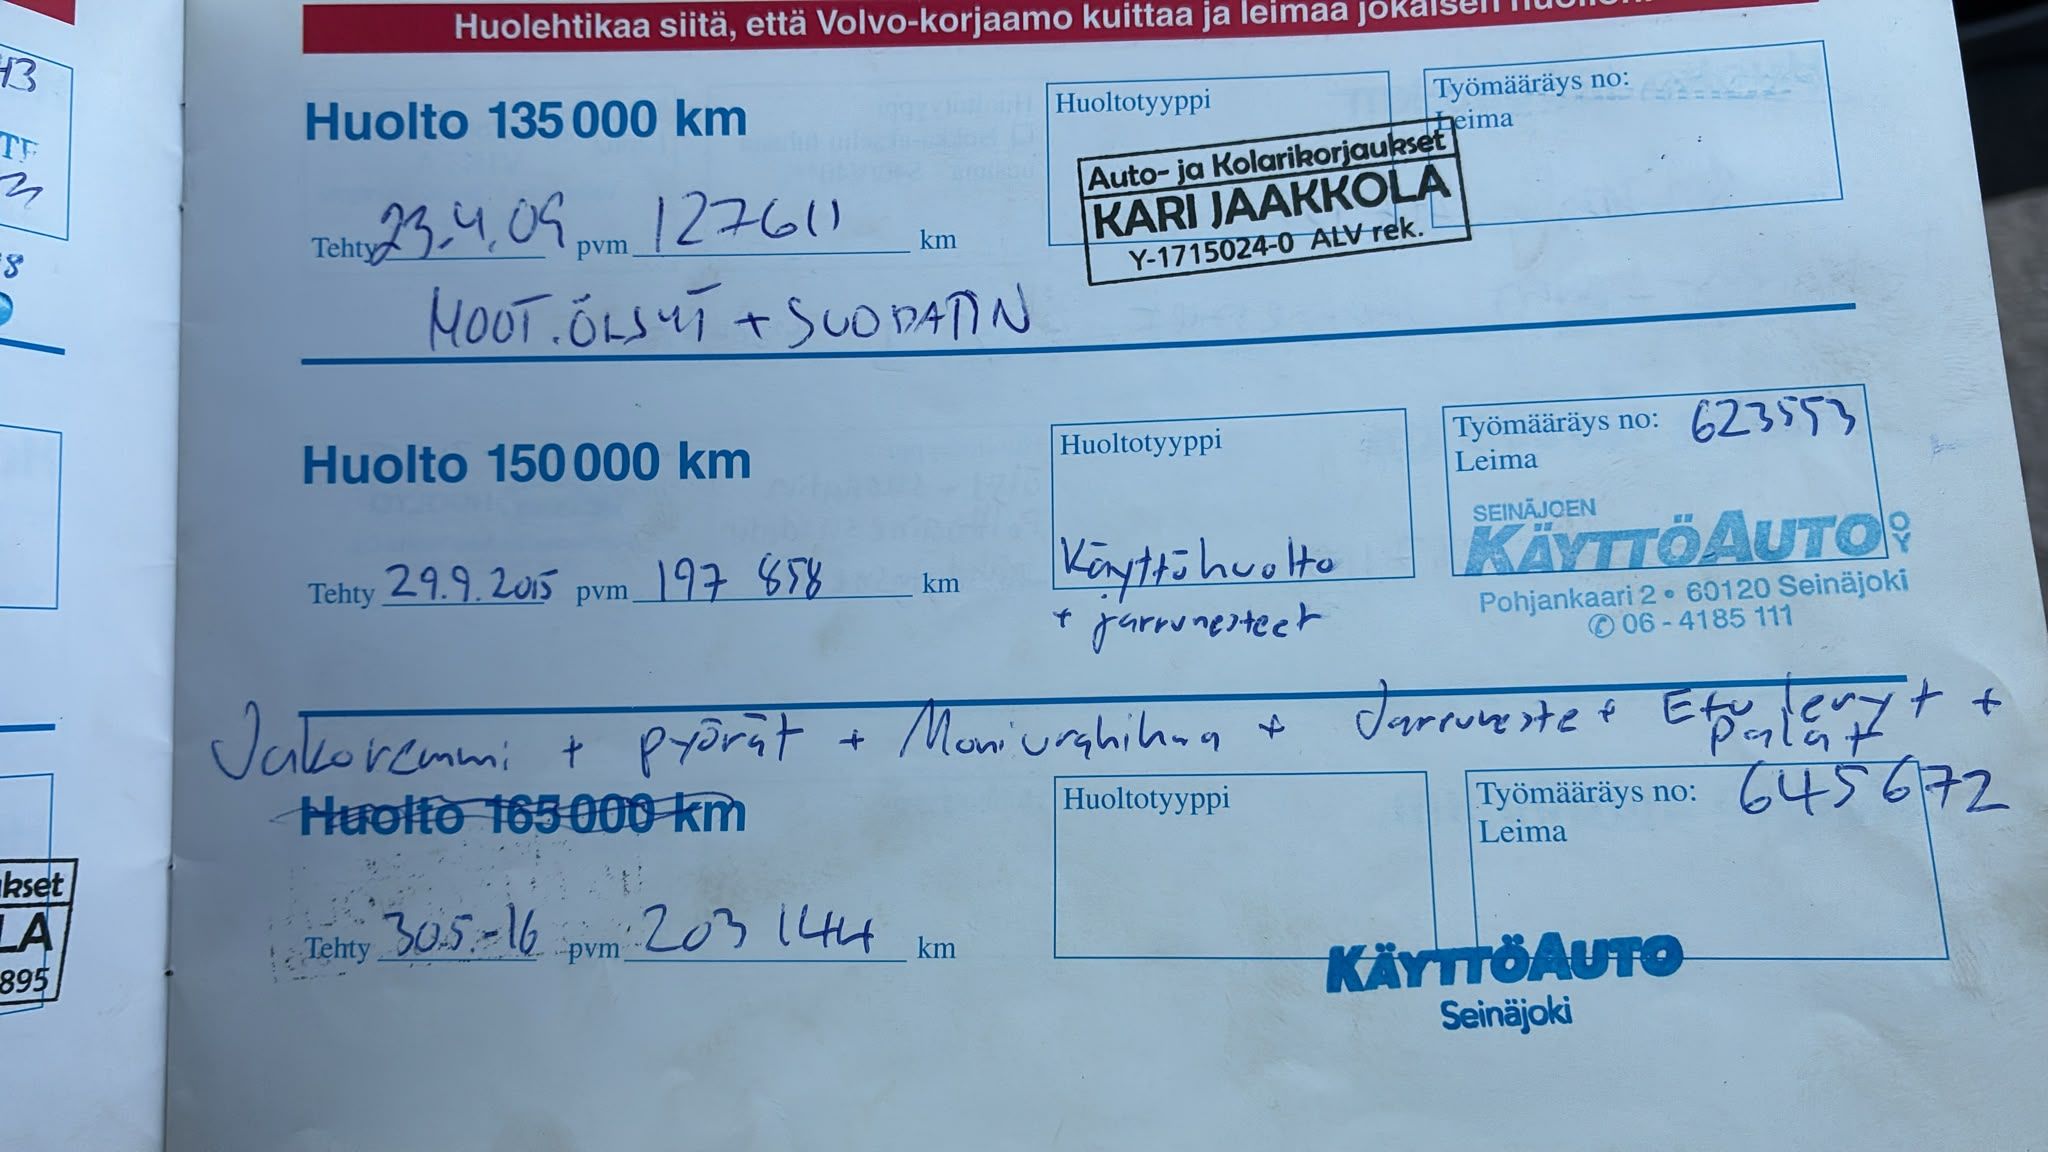 Huolehtikaa siitä, että Volvo-korjaamo kuittaa ja leimaa jokaisen
Huolto 135 000 km
Huoltotyyppi
Työmääräys no:
Leima
Auto- ja Kolarikorjaukset
KARI JAAKKOLA
Y-1715024-0 ALV rek.
Tehty 23.4.09 pvm 127611 km
MOOT.ÖLJYT + SUODATIN
Huolto 150 000 km
Huoltotyyppi
Käyttöhuolto
+ jarrunesteet
Työmääräys no: 623553
Leima
SEINÄJOEN
KÄYTTÖAUTO OY
Pohjankaari 2 • 60120 Seinäjoki
✆ 06 - 4185 111
Tehty 29.9.2015 pvm 197 858 km
Jakoremmi + pyörät + Moniurahihna + Jarruneste + Etu levyt +
Palat
Huolto 165 000 km
Huoltotyyppi
Työmääräys no: 645672
Leima
Tehty 30.5.-16 pvm 203 144 km
KÄYTTÖAUTO
Seinäjoki
43
8
kset
LA
895